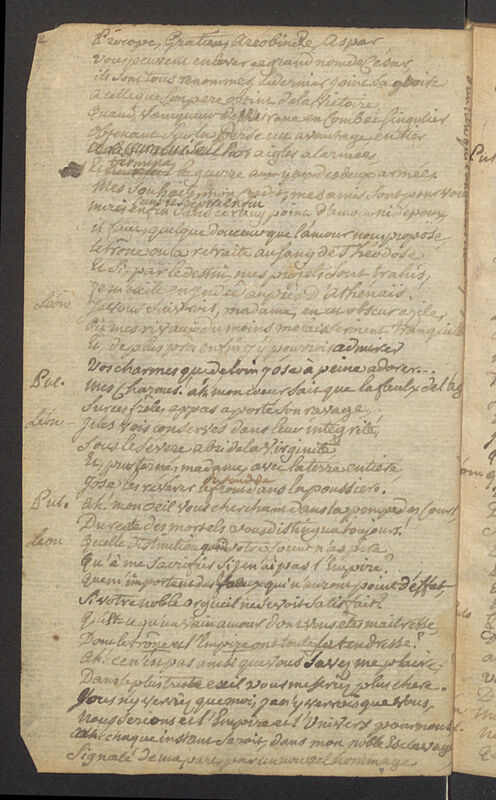 Procope, Gratien, Areobinde, Aspar
vous peuvent enlever ce grand nom de César
ils sont tous renommés, le dernier joint sa gloire
a celle que son père obtint de la Victoire
Quand, vainqueur de en Combat singulier
Obtenant sur la Perse un avantage entier
aigles alarmées
Et termine la guerre aux yeux des deux armées.
Mes Souhaits, mon crédit, mes amis sont pour vous
mais enfin sans ce rang point d'amour ni d'epoux
il faut quelque douceur que l'amour nous propose
le trône ou la retraite au sang de Théodose
Et si, par le destin mes projets sont trahis,
Je m'exile en Judée auprès d'Athénais.
Léon Je vous suivrois, madame, en cet obscur azile,
Où mes rivaux du moins me laisseroient tranquille
Et de plus près enfin j'y pourrois admirer
Vos charmes que de loin j'ose à peine adorer...
Pul. Mes Charmes. ah mon coeur sais que la faulx de l'âge
Sur ces frêles appas a porté son ravage.
Léon Je les vois conservés dans leur intégrité
Sous le sévère abri de la Virginité
Et prosterné, madame, avec la terre entière
J'ose les révérer le front dans la poussière.
Pul. Ah. mon oeil vous cherchant dans la pompe des Cours
Du reste des mortels vous distingua toujours.
Léon Quelle distinction quand votre coeur n'aspire
Qu'à me sacrifier si je n'ai pas l'Empire.
Quem'importent des voeux qui n'auront point d'effet
Si votre noble orgueil ne se voit satisfait?
Qu'est ce qu'un vain amour dont vous etes maitresse
Dont le trône et l'Empire ont toute la tendresse?
Ah. ce n'est pas ainsi que vous savez me plaire.
Dans le plus triste exil vous me seriez plus chere..
Vous n'y verriez que moi, je n'y verrois que vous,
Nous serions et l'Empire et l'Univers pour nous
Ah. chaque instant seroit, dans mon noble Esclavage
Signalé de ma part par un nouvel hommage